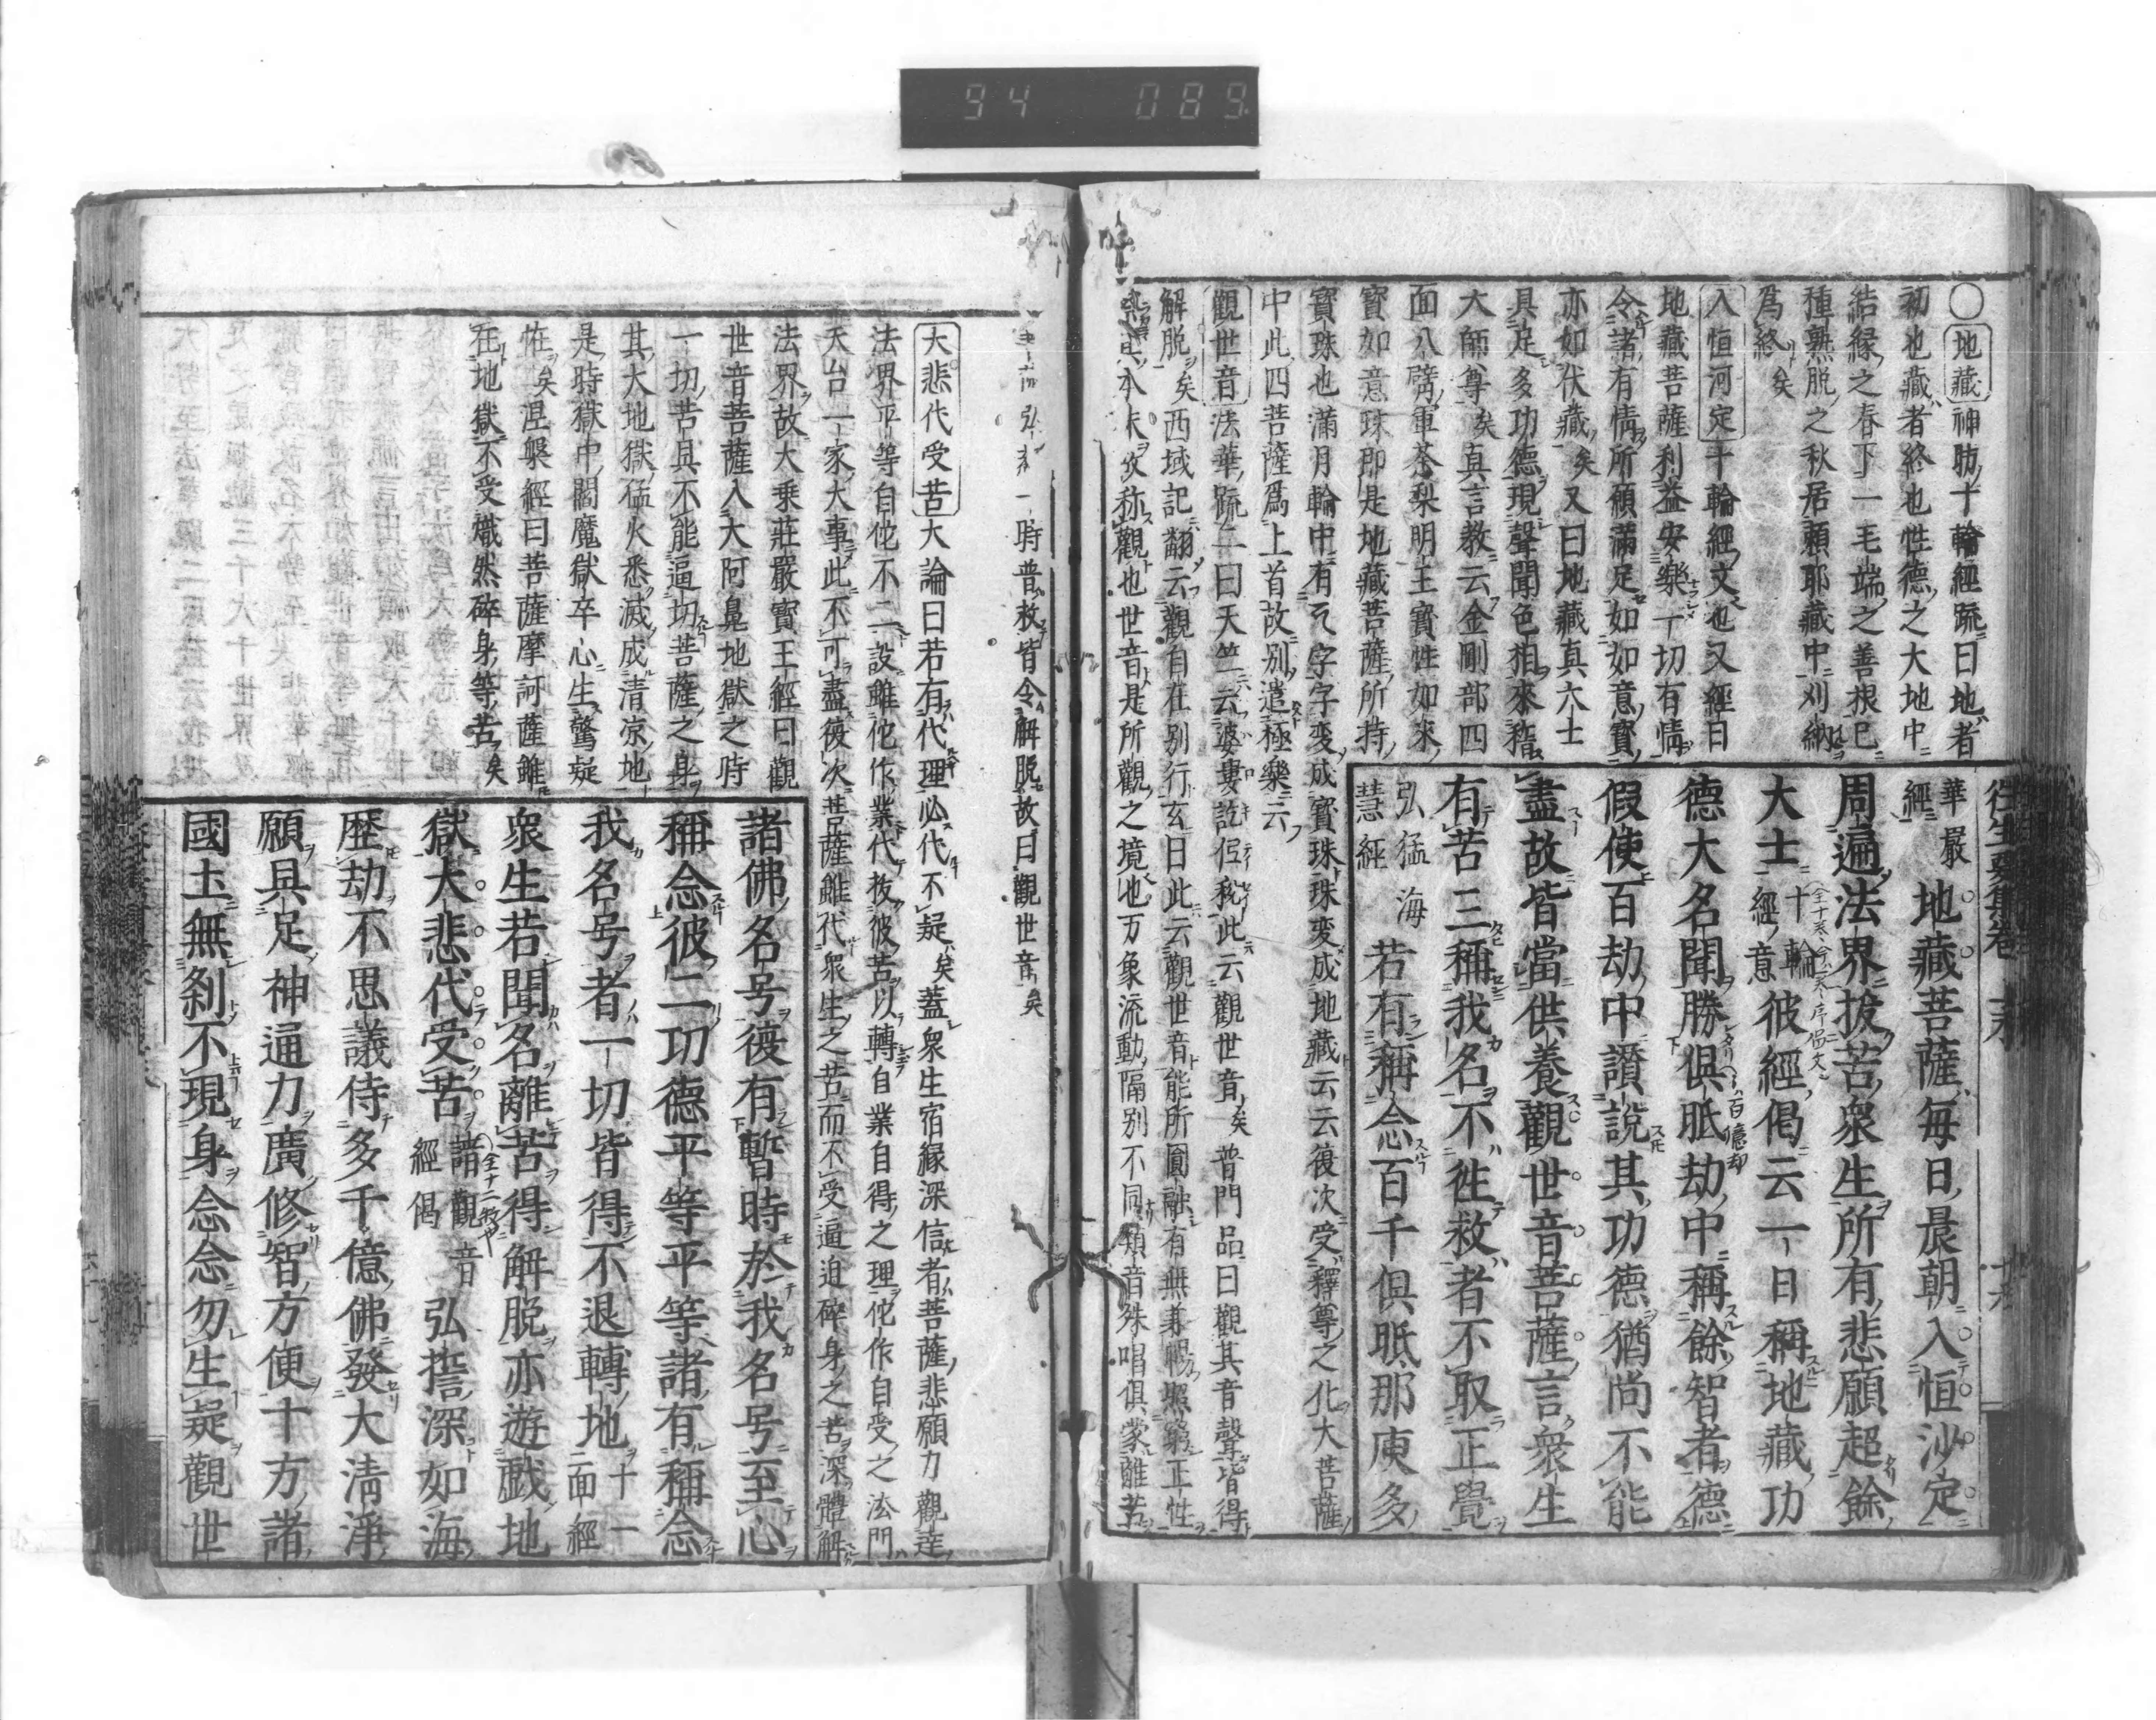 94 089
往生要集卷上末
〇地藏神肪十輪經疏曰地者
初也藏者終也性德之大地中
結緣之春下一毛端之善根已
種熟脱之秋居頼耶藏中刈納
爲終矣
入恒河定十輪經文也又經曰
地藏菩薩利益安樂一切有情
令諸有情所願滿足如如意寶
亦如伏藏矣又曰地藏真六士
具足多功德現聲聞色相來稽
大師尊矣真言教云金剛部四
面八臂軍荼梨明王寶性如來
寶如意珠即是地藏菩薩所持
寶珠也滿月輪中有字字変成寳珠珠変成地藏云云復次受釋尊之化大菩薩
中此四菩薩爲上首故別遣極樂云
觀世音法華疏二曰天竺云婆婁訖侄稅此云觀世音矣普門品曰觀其音聲皆得
解脱矣西域記翻云觀自在別行玄曰此云觀世音能所圓融有無兼暢照窮正性
察其本末故称觀也世音是所觀之境也万象流動隔別不同類音殊唱俱蒙離苦
華嚴經地藏菩薩毎日晨朝入恒沙定
周遍法界拔苦衆生所有悲願超餘
大士十輪經意彼經偈云一日稱地藏功
德大名聞勝俱胝劫中稱餘智者德
假使百劫中讚說其功德猶尚不能
盡故皆當供養觀世音菩薩言衆生
有苦三稱我名不徃救者不取正覺
弘猛海慧經若有稱念百千俱胝那庾多
弘一時普救皆令解脱故曰觀世音矣
大悲代受苦大論曰若有代理必代不疑矣蓋衆生宿緣深信者菩薩悲願力觀達
法界平等自佗不二設雖佗作業代救彼苦以轉自業自得之理佗作自受之法門
天台一家大事此不可盡復次菩薩雖代衆生之苦而不受逼迫碎身之苦深體解
法界故大乘莊嚴寶王經曰觀
世音菩薩入大阿鼻地獄之時
一切苦具不能逼切菩薩之身
其大地獄猛火悉滅成清凉地
是時獄中閻魔獄卒心生驚疑
恠矣涅槃經曰菩薩摩訶薩雖
在地獄不受熾然碎身等苦矣
諸佛名号復有暫時於我名号至心
稱念彼二功德平等平等諸有稱念
我名号者一切皆得不退轉地十一面經
衆生若聞名離苦得解脱亦遊戲地
獄大悲代受苦請觀音經偈弘誓深如海
歷劫不思議侍多千億佛發大清淨
願具足神通力廣修智方便十方諸
國土無刹不現身念念勿生疑觀世